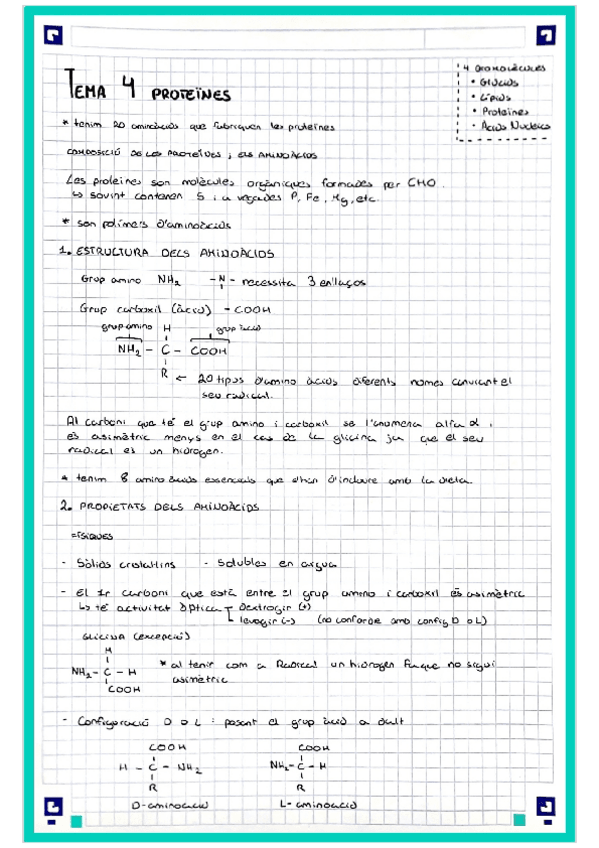 TEMA 4 PROTEÏNES
4 BIOMOLÈCULES
• Glúcids
• Lípids
• Proteïnes
• Àcids Nucleics
* tenim 20 aminoàcids que fabriquen les proteïnes
COMPOSICIÓ DE LES PROTEÏNES, ELS AMINOÀCIDS
Les proteïnes són molècules orgàniques formades per CHO.
↳ sovint contenen S i a vegades P, Fe, Mg, etc.
* són polímers d'aminoàcids
1. ESTRUCTURA DELS AMINOÀCIDS
Grup amino NH₂ - N - necessita 3 enllaços
Grup carboxil (àcid) - COOH
grup amino H grup àcid
NH₂ - C - COOH
R ← 20 tipus d'amino àcids diferents només canviant el
seu radical.
Al carboni que té el grup amino i carboxil se l'anomena alfa α i
és asimètric menys en el cas de la glicina ja que el seu
radical és un hidrogen.
* tenim 8 amino àcids essencials que s'han d'incloure amb la dieta.
2. PROPIETATS DELS AMINOÀCIDS
FÍSIQUES
- Sòlids cristal·lins - Solubles en aigua
- El 1r carboni que està entre el grup amino i carboxil és asimètric
↳ té activitat òptica dextrogir (+)
levogir (-) (no confondre amb config D o L)
GLICINA (excepció)
H
NH₂ - C - H
COOH
* al tenir com a Radical un hidrogen fa que no sigui
asimètric
- Configuració D o L : posant el grup àcid a dalt
COOH COOH
H - C - NH₂ NH₂ - C - H
R R
D-aminoàcid L-aminoàcid